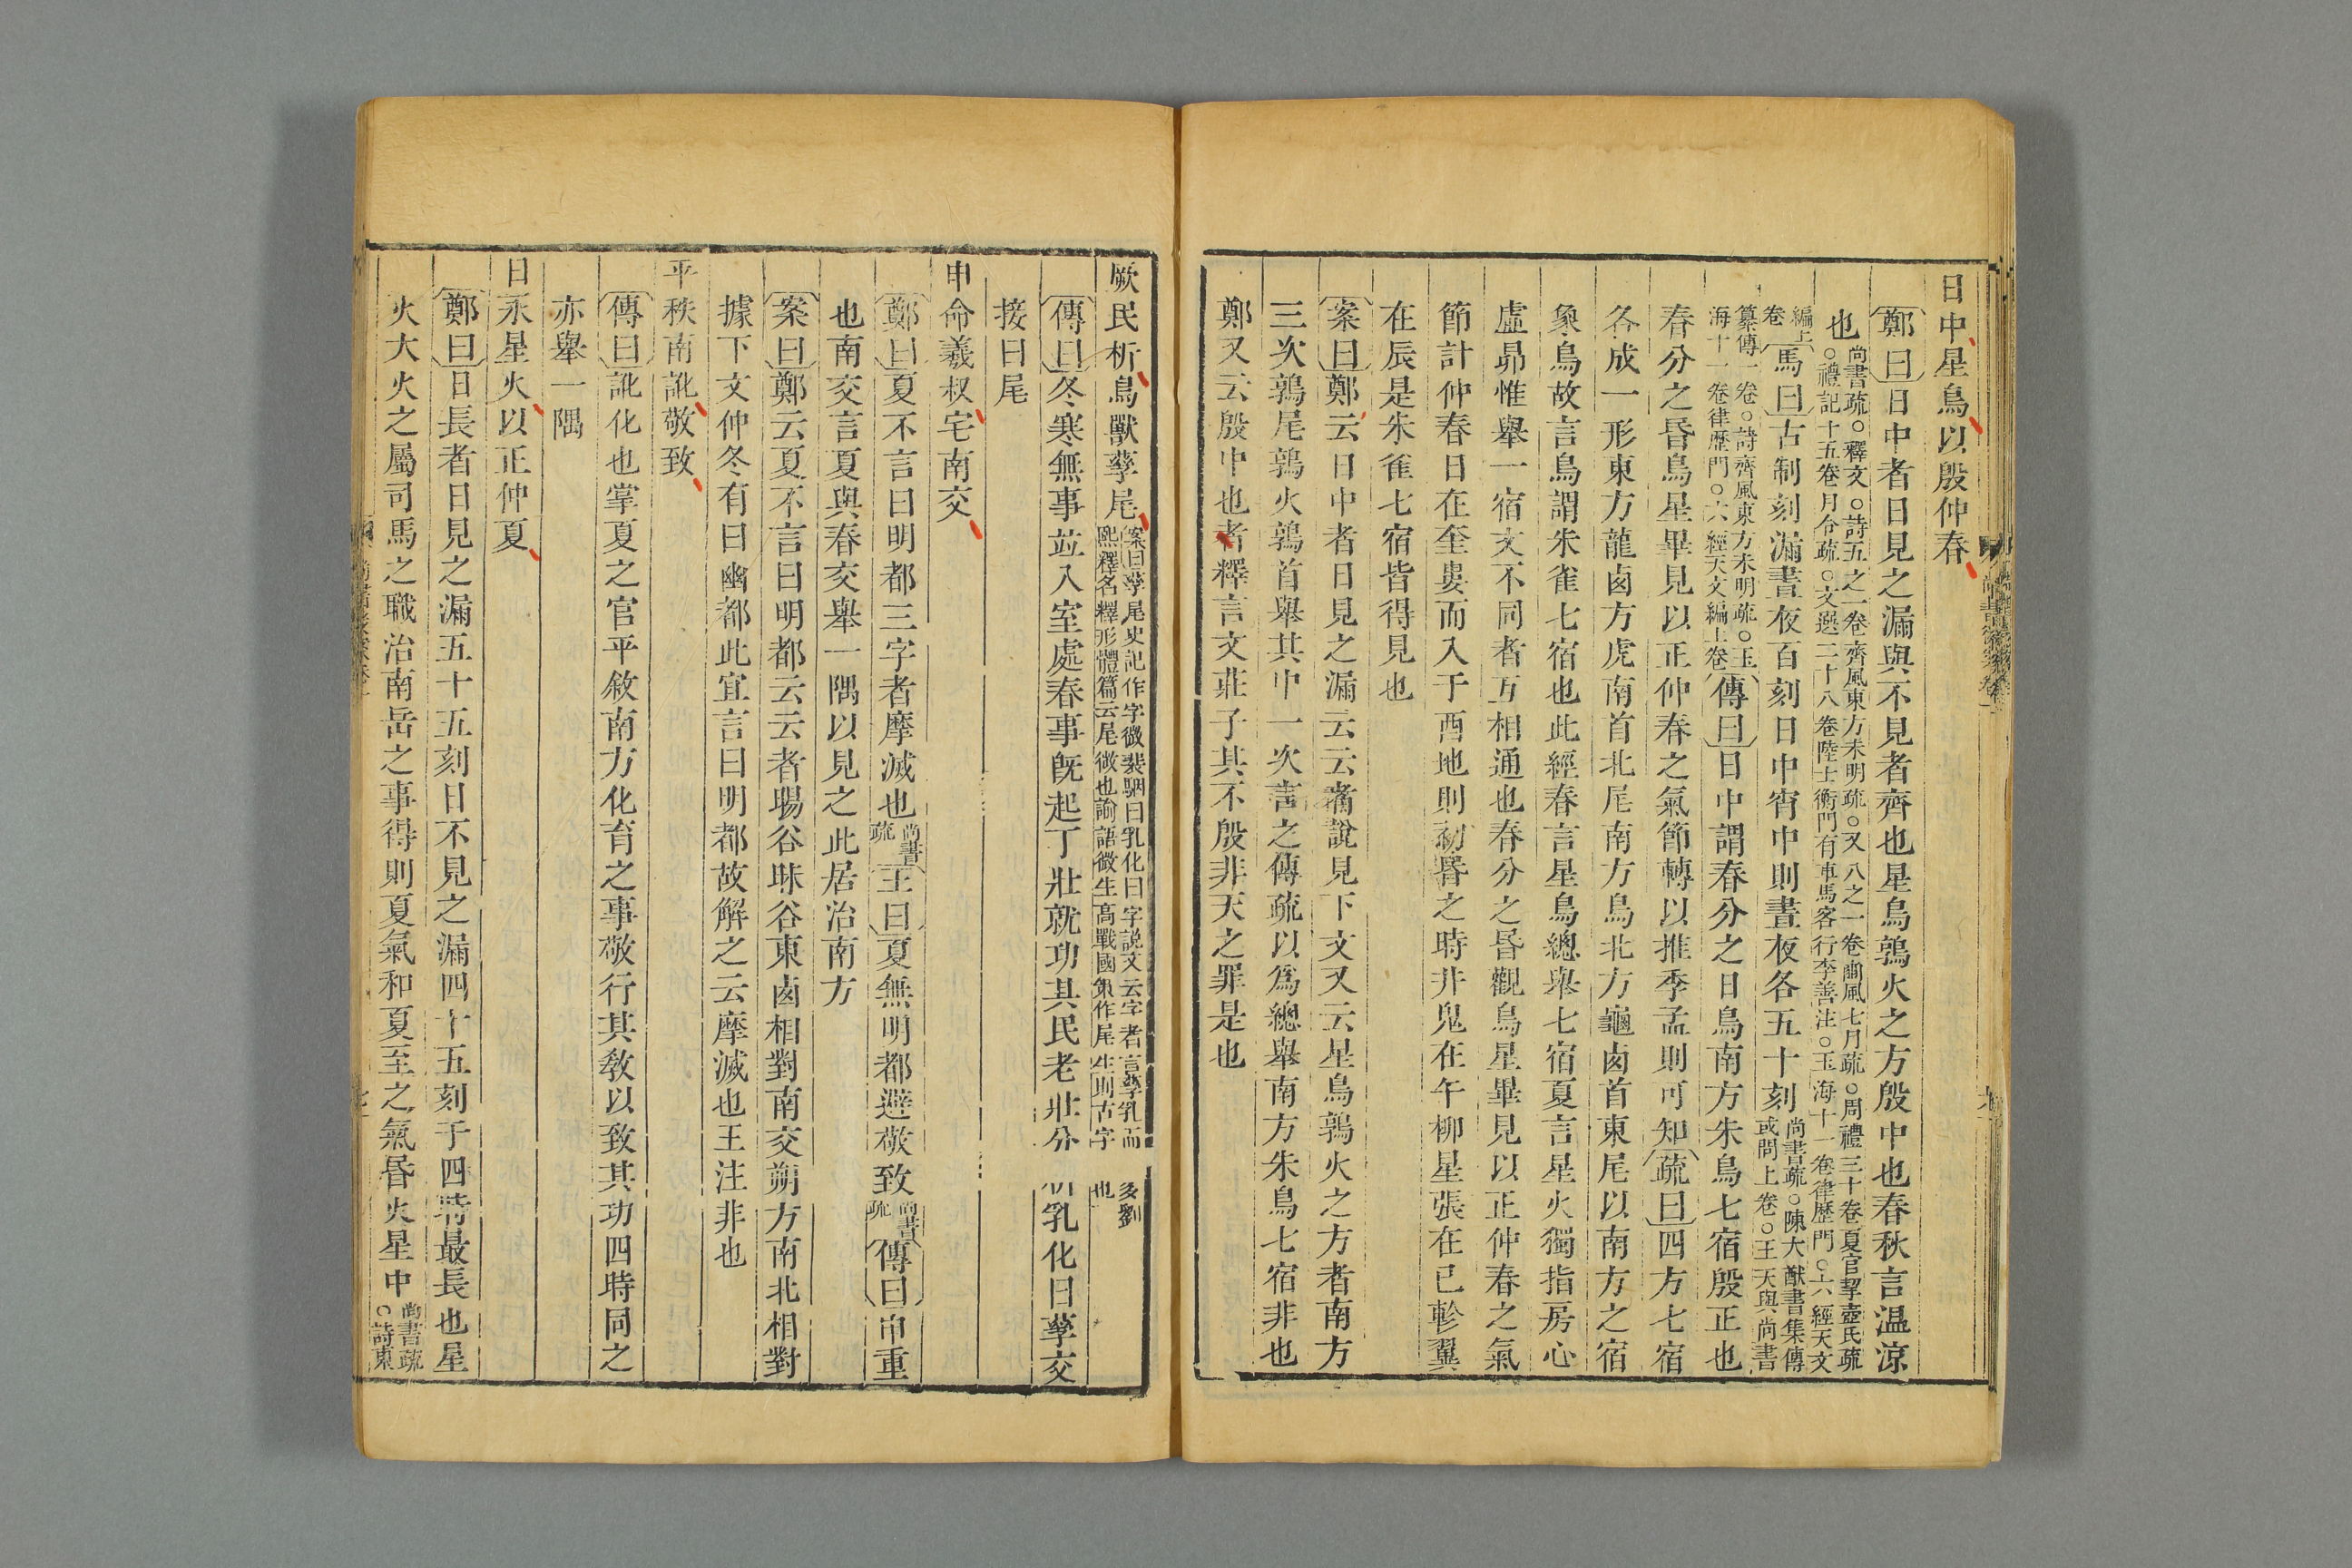 日中星鳥以殷仲春
鄭曰日中者日見之漏與不見者齊也星鳥鶉火之方殷中也春秋言温涼
也尚書疏○釋文○詩五之一卷齊風東方未明疏○又八之一卷豳風七月疏○周禮三十卷夏官挈壺氏疏
○禮記十五卷月令疏○文選二十八卷陸士衡門有車馬客行李善注○玉海十一卷律歷門○六經天文
編上卷馬曰古制刻漏晝夜百刻日中宵中則晝夜各五十刻尚書疏○陳大猷書集傳或問上卷○王天與尚書
纂傳一卷○詩齊風東方未明疏○玉海十一卷律歷門○六經天文編上卷傳曰日中謂春分之日鳥南方朱鳥七宿殷正也
春分之昏鳥星畢見以正仲春之氣節轉以推季孟則可知疏曰四方七宿
各成一形東方龍鹵方虎南首北尾南方鳥北方龜鹵首東尾以南方之宿
象鳥故言鳥謂朱雀七宿也此經春言星鳥總舉七宿夏言星火獨指房心
虛昴惟舉一宿文不同者互相通也春分之昏觀鳥星畢見以正仲春之氣
節計仲春日在奎婁而入于酉地則初昏之時井鬼在午柳星張在巳軫翼
在辰是朱雀七宿皆得見也
案曰鄭云日中者日見之漏云云者說見下文又云星鳥鶉火之方者南方
三次鶉尾鶉火鶉首舉其中一次言之傳疏以爲總舉南方朱鳥七宿非也
鄭又云殷中也者釋言文莊子其不殷非天之罪是也
厥民析鳥獸孳尾案曰孳尾史記作字微裴駰曰乳化曰字說文云字者言孳乳而多劉
熙釋名釋形體篇云尾微也論語微生高戰國策作尾生則古字也
傳曰冬寒無事並入室處春事旣起丁壯就功其民老壯分析乳化曰孳交
接曰尾
申命羲叔宅南交
鄭曰夏不言曰明都三字者摩滅也尚書疏王曰夏無明都避敬致尚書疏傳曰申重
也南交言夏與春交舉一隅以見之此居治南方
案曰鄭云夏不言曰明都云云者暘谷昧谷東鹵相對南交朔方南北相對
據下文仲冬有曰幽都此宜言曰明都故解之云摩滅也王注非也
平秩南訛敬致
傳曰訛化也掌夏之官平敘南方化育之事敬行其敎以致其功四時同之
亦舉一隅
日永星火以正仲夏
鄭曰日長者日見之漏五十五刻日不見之漏四十五刻于四時最長也星
火大火之屬司馬之職治南岳之事得則夏氣和夏至之氣昏火星中尚書疏○詩東